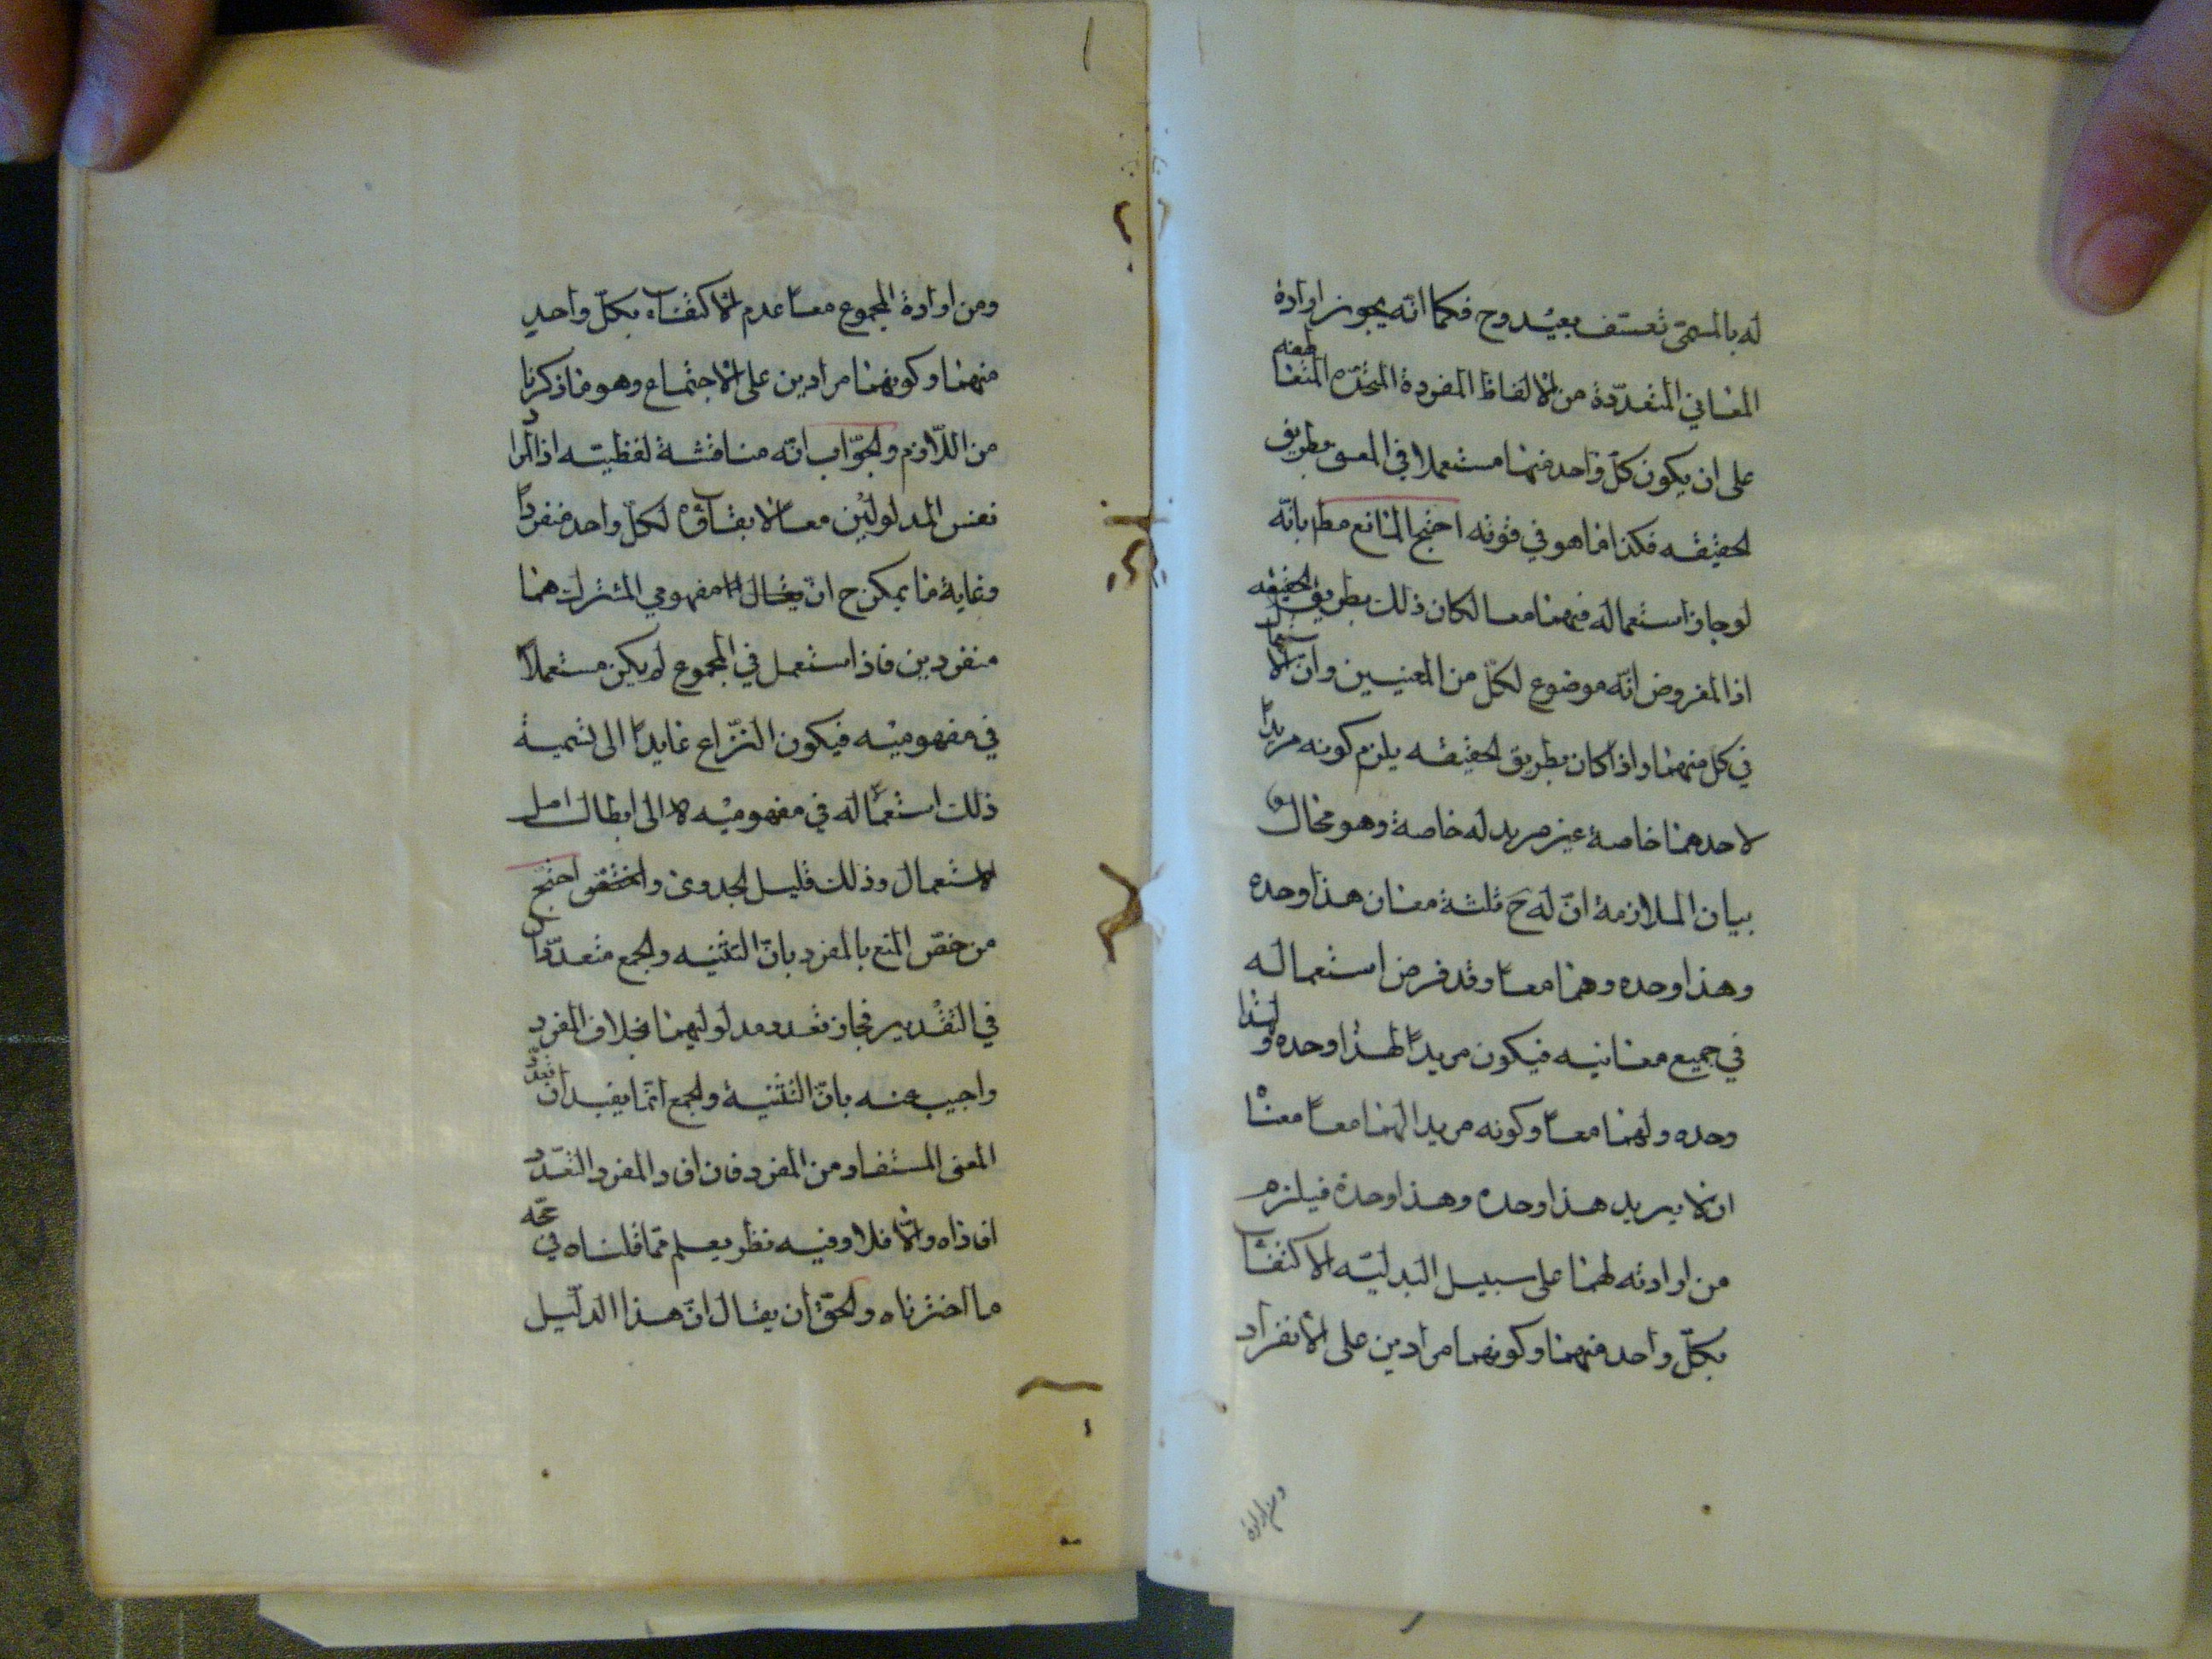 له بالمسمى تعسف بعيد وح فكما انه يجوز ارادة
المعاني المتعددة من الالفاظ المفردة المتحدة المتعاطفة
على ان يكون كل واحد منها مستعملا في المعنى بطريق
الحقيقه فكذا ما هو في قوته احتج المانع مطا بانه
لو جاز استعماله فيهما معا لكان ذلك بطريق الحقيقه
اذا المفروض انه موضوع لكل من المعنيين وان الاستعمال
في كل منهما واذا كان بطريق الحقيقه يلزم كونه مريدا
لاحدهما خاصة غير مريد له خاصة وهو محال
بيان الملازمة ان له ح ثلثة معان هذا وحده
وهذا وحده وهما معا وقد فرض استعماله
في جميع معانيه فيكون مريدا لهذا وحده ولهذا
وحده ولهما معا وكونه مريدا لهما معا معناه
ان لا يريد هذا وحده وهذا وحدة فيلزم
من ارادته لهما على سبيل البدليه الاكتفاء
بكل واحد منهما وكونهما مرادين على الانفراد
ومن ارادة
ومن ارادة المجموع معا عدم الاكتفاء بكل واحد
منهما وكونهما مرادين على الاجتماع وهو ما ذكرنا
من اللازم والجواب انه مناقشة لفظيته اذ المراد
نفس المدلولين معا لا بقاؤه لكل واحد منفردا
وغاية ما يمكن ح ان يقال ان مفهومي المشترك هما
منفردين فاذا استعمل في المجموع لم يكن مستعملا
في مفهوميه فيكون النزاع عايدا الى تسمية
ذلك استعمالا له في مفهوميه لا الى ابطال اصل
الاستعمال وذلك قليل الجدوى واحتج
من خص المنع بالمفرد بان التثنيه والجمع متعددان
في التقدير فجاز تعدد مدلوليهما بخلاف المفرد
واجيب عنه بان التثنية والجمع انما يفيدان تعدد
المعنى المستفاد من المفرد فان افاد المفرد التعدد
افاداه والا فلا وفيه نظر يعلم مما قلناه في حجة
ما اخترناه والحق ان يقال ان هذا الدليل